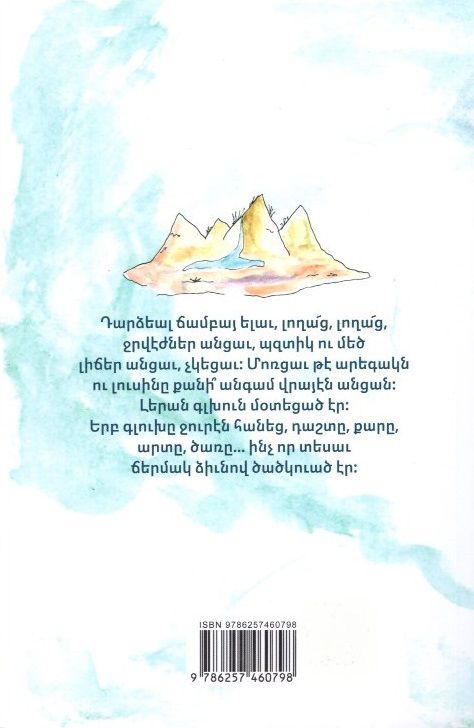 Դարձեալ ճամբայ ելաւ, լողա՜ց, լողա՜ց,
ջրվէժներ անցաւ, պզտիկ ու մեծ
լիճեր անցաւ, չկեցաւ։ Մոռցաւ թէ արեգակն
ու լուսինը քանի՞ անգամ վրայէն անցան։
Լերան գլխուն մօտեցած էր։
Երբ գլուխը ջուրէն հանեց, դաշտը, քարը,
արտը, ծառը... ինչ որ տեսաւ
ճերմակ ձիւնով ծածկուած էր։
ISBN 9786257460798
9 786257 460798